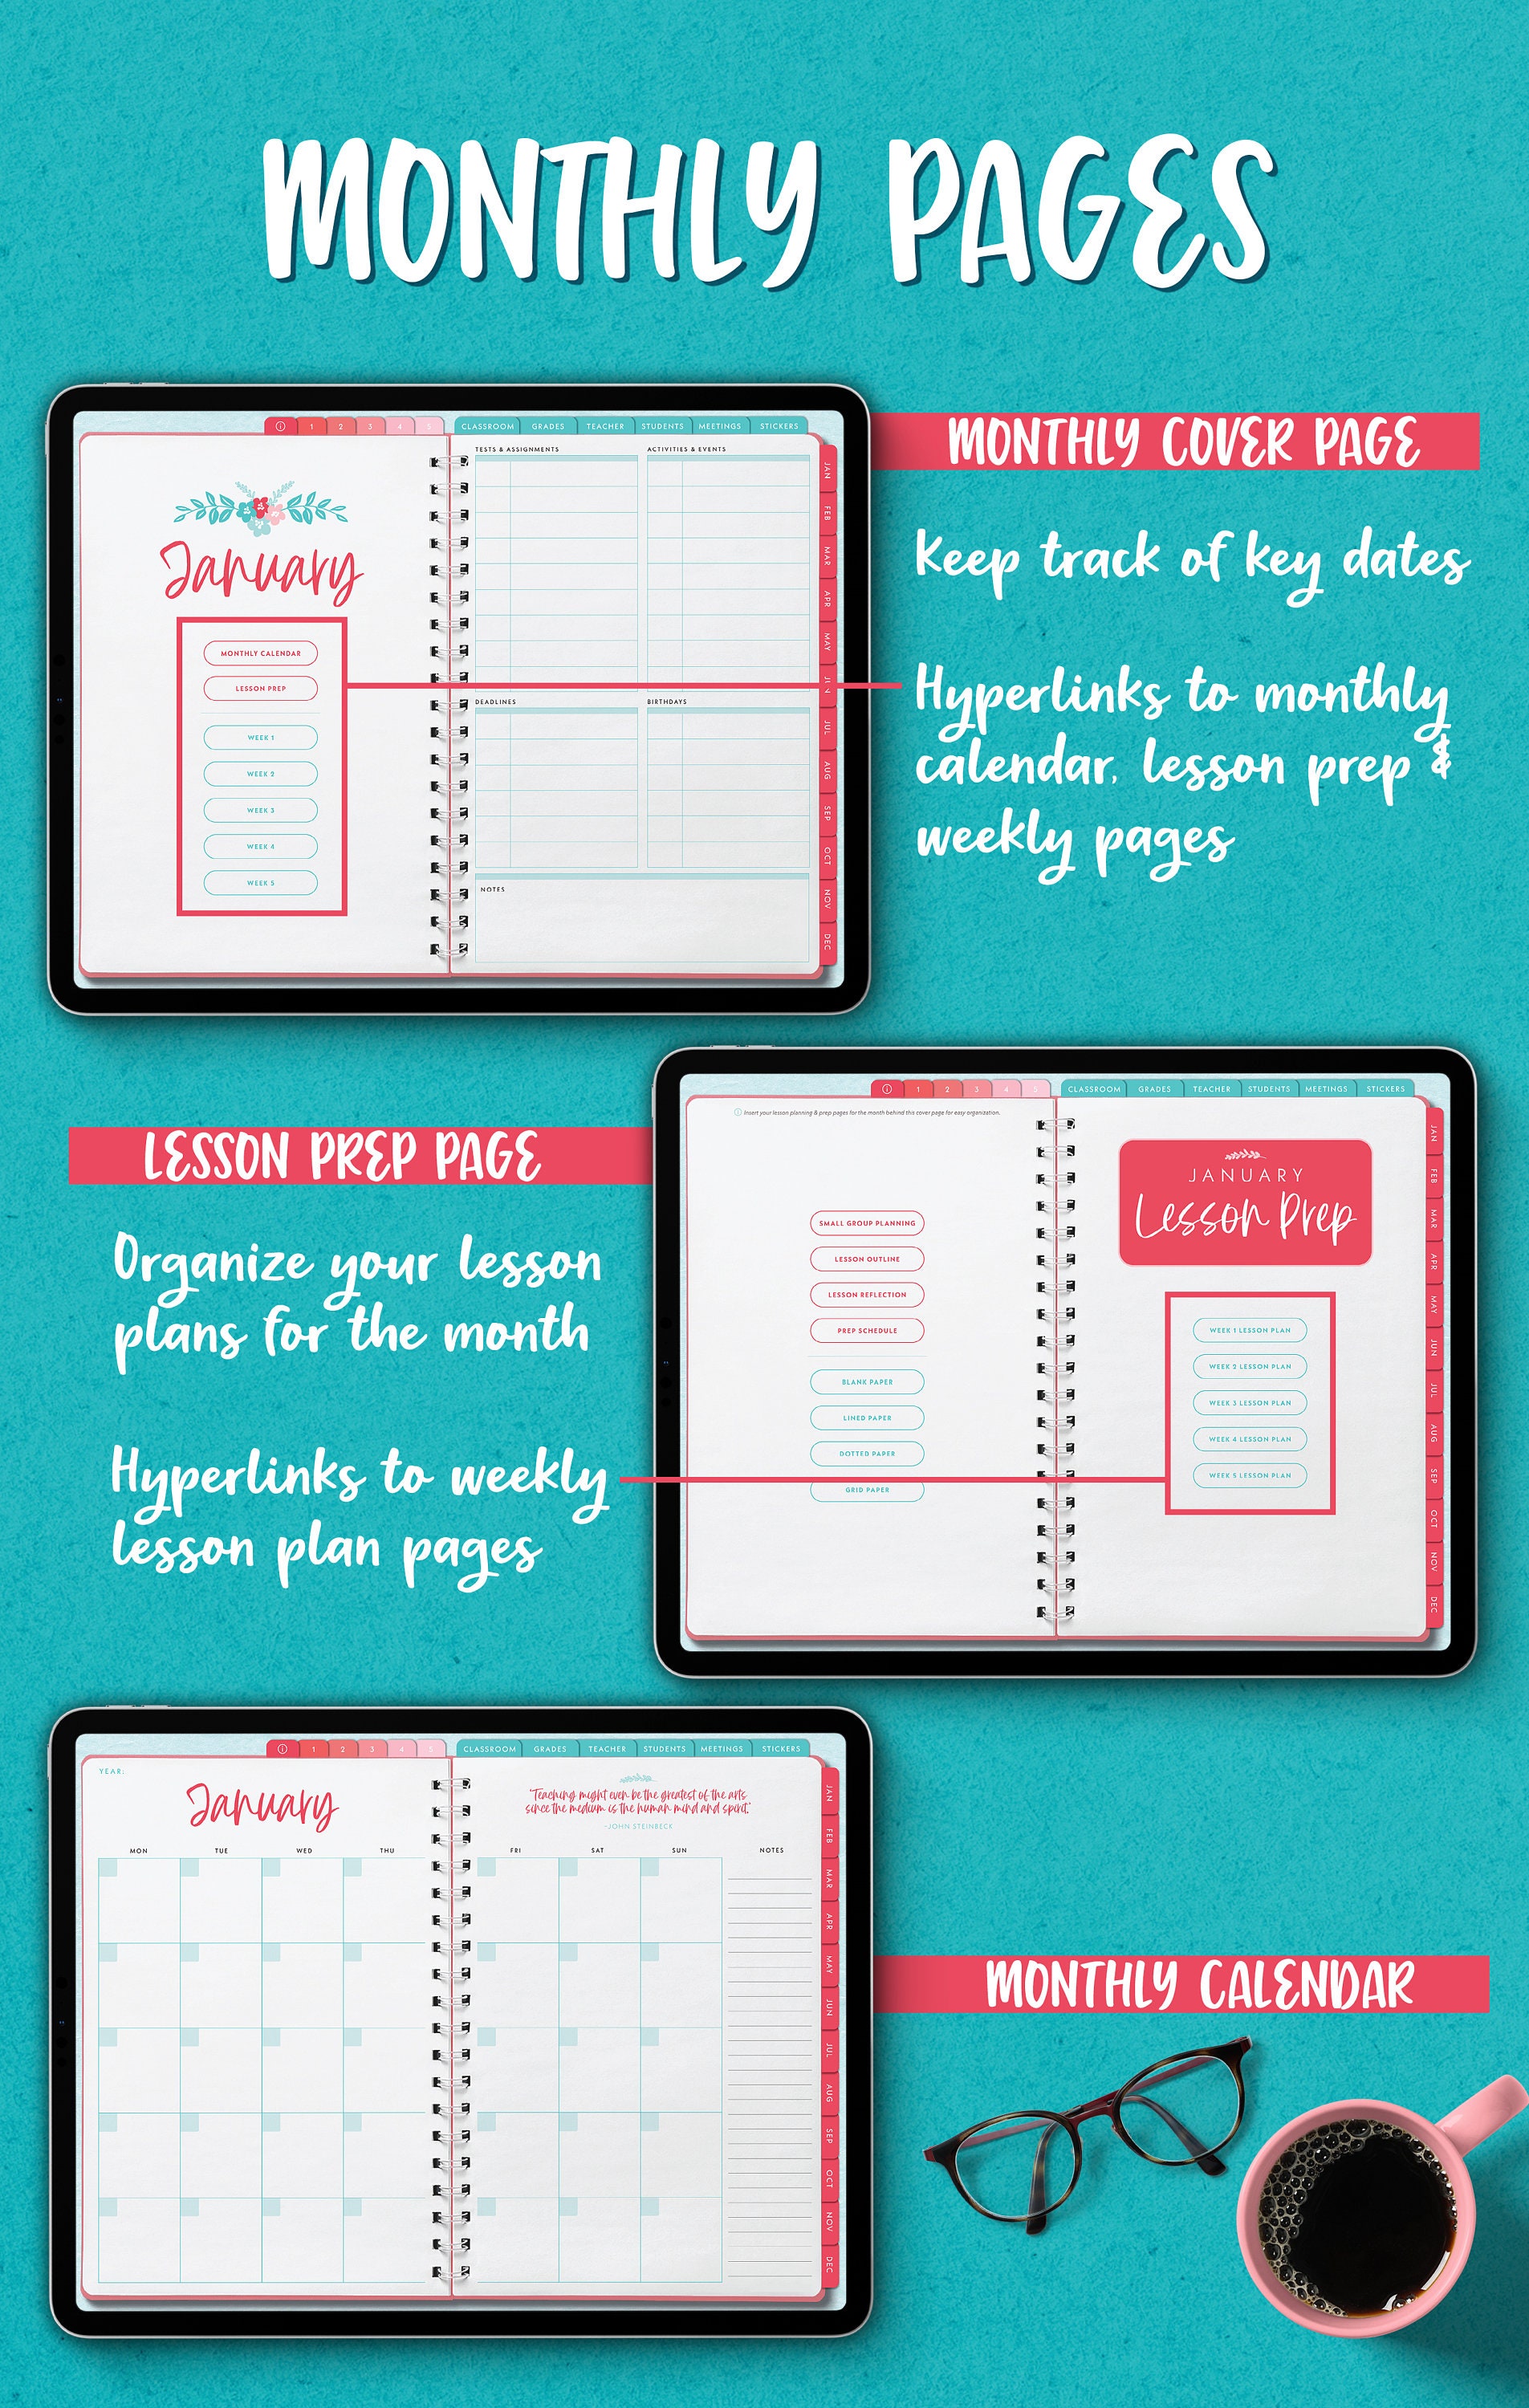 MONTHLY PAGES
1 2 3 4 5 CLASSROOM GRADES TEACHER STUDENTS MEETINGS STICKERS
January
MONTHLY CALENDAR
LESSON PREP
WEEK 1
WEEK 2
WEEK 3
WEEK 4
WEEK 5
TESTS & ASSIGNMENTS
ACTIVITIES & EVENTS
DEADLINES
BIRTHDAYS
NOTES
JAN
FEB
MAR
APR
MAY
JUN
JUL
AUG
SEP
OCT
NOV
DEC
MONTHLY COVER PAGE
Keep track of key dates
Hyperlinks to monthly
calendar, lesson prep &
weekly pages
LESSON PREP PAGE
Organize your lesson
plans for the month
Hyperlinks to weekly
lesson plan pages
1 2 3 4 5 CLASSROOM GRADES TEACHER STUDENTS MEETINGS STICKERS
Insert your lesson planning & prep pages for the month behind this cover page for easy organization.
SMALL GROUP PLANNING
LESSON OUTLINE
LESSON REFLECTION
PREP SCHEDULE
BLANK PAPER
LINED PAPER
DOTTED PAPER
GRID PAPER
JANUARY
Lesson Prep
WEEK 1 LESSON PLAN
WEEK 2 LESSON PLAN
WEEK 3 LESSON PLAN
WEEK 4 LESSON PLAN
WEEK 5 LESSON PLAN
JAN
FEB
MAR
APR
MAY
JUN
JUL
AUG
SEP
OCT
NOV
DEC
1 2 3 4 5 CLASSROOM GRADES TEACHER STUDENTS MEETINGS STICKERS
YEAR:
January
"Teaching might even be the greatest of the arts
since the medium is the human mind and spirit."
-JOHN STEINBECK
MON TUE WED THU FRI SAT SUN NOTES
JAN
FEB
MAR
APR
MAY
JUN
JUL
AUG
SEP
OCT
NOV
DEC
MONTHLY CALENDAR